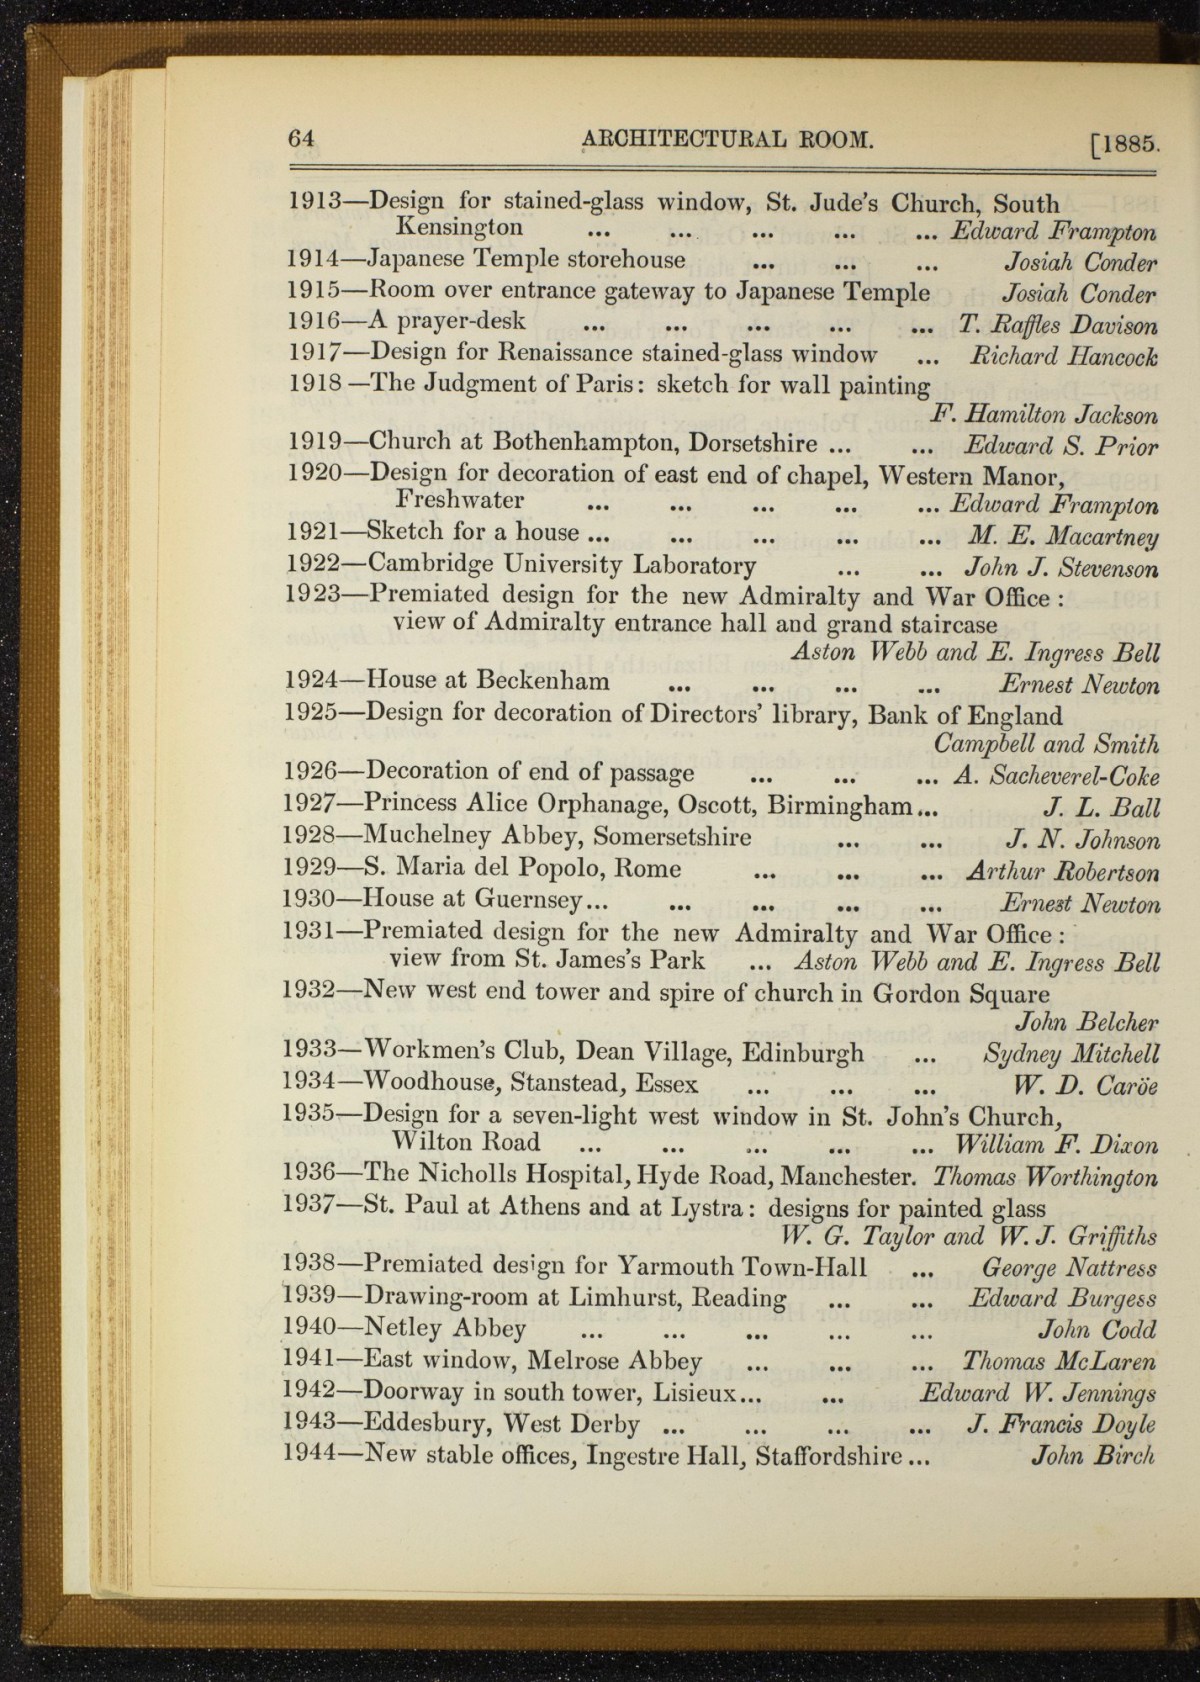 64 ARCHITECTURAL ROOM. [1885.
1913—Design for stained-glass window, St. Jude's Church, South
Kensington ... ... ... ... ... Edward Frampton
1914—Japanese Temple storehouse ... ... ... Josiah Conder
1915—Room over entrance gateway to Japanese Temple Josiah Conder
1916—A prayer-desk ... ... ... ... ... T. Raffles Davison
1917—Design for Renaissance stained-glass window ... Richard Hancock
1918—The Judgment of Paris: sketch for wall painting
F. Hamilton Jackson
1919—Church at Bothenhampton, Dorsetshire ... ... Edward S. Prior
1920—Design for decoration of east end of chapel, Western Manor,
Freshwater ... ... ... ... ... Edward Frampton
1921—Sketch for a house ... ... ... ... ... M. E. Macartney
1922—Cambridge University Laboratory ... ... John J. Stevenson
1923—Premiated design for the new Admiralty and War Office:
view of Admiralty entrance hall and grand staircase
Aston Webb and E. Ingress Bell
1924—House at Beckenham ... ... ... ... Ernest Newton
1925—Design for decoration of Directors' library, Bank of England
Campbell and Smith
1926—Decoration of end of passage ... ... ... A. Sacheverel-Coke
1927—Princess Alice Orphanage, Oscott, Birmingham... J. L. Ball
1928—Muchelney Abbey, Somersetshire ... ... J. N. Johnson
1929—S. Maria del Popolo, Rome ... ... ... Arthur Robertson
1930—House at Guernsey... ... ... ... ... Ernest Newton
1931—Premiated design for the new Admiralty and War Office:
view from St. James's Park ... Aston Webb and E. Ingress Bell
1932—New west end tower and spire of church in Gordon Square
John Belcher
1933—Workmen's Club, Dean Village, Edinburgh ... Sydney Mitchell
1934—Woodhouse, Stanstead, Essex ... ... ... W. D. Caröe
1935—Design for a seven-light west window in St. John's Church,
Wilton Road ... ... ... ... ... William F. Dixon
1936—The Nicholls Hospital, Hyde Road, Manchester. Thomas Worthington
1937—St. Paul at Athens and at Lystra: designs for painted glass
W. G. Taylor and W. J. Griffiths
1938—Premiated design for Yarmouth Town-Hall ... George Nattress
1939—Drawing-room at Limhurst, Reading ... ... Edward Burgess
1940—Netley Abbey ... ... ... ... ... John Codd
1941—East window, Melrose Abbey ... ... ... Thomas McLaren
1942—Doorway in south tower, Lisieux... ... Edward W. Jennings
1943—Eddesbury, West Derby ... ... ... ... J. Francis Doyle
1944—New stable offices, Ingestre Hall, Staffordshire... John Birch